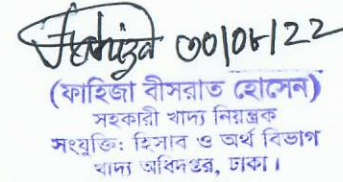 ৩০/০৮/২২
(ফাহিজা বীসরাত হোসেন)
সহকারী খাদ্য নিয়ন্ত্রক
সংযুক্তি: হিসাব ও অর্থ বিভাগ
খাদ্য অধিদপ্তর, ঢাকা।